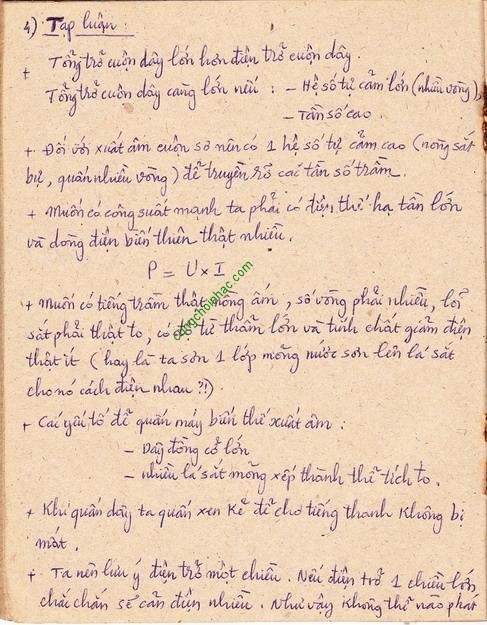 4) Tạp luận :
+ Tổng trở cuộn dây lớn hơn điện trở cuộn dây.
Tổng trở cuộn dây càng lớn nếu : – Hệ số tự cảm lớn (nhiều vòng),
– Tần số cao.
+ Đối với xuất âm cuộn sơ nên có 1 hệ số tự cảm cao (nòng sắt
bự, quấn nhiều vòng) để truyền rõ các tần số trầm.
+ Muốn có công suất mạnh ta phải có điện thế hạ tần lớn
và dòng điện biến thiên thật nhiều.
P = U x I
+ Muốn có tiếng trầm thật nồng ấm, số vòng phải nhiều, lõi
sắt phải thật to, có độ từ thẩm lớn và tính chất giảm điện
thật ít (hay là ta sơn 1 lớp mỏng nước sơn lên lá sắt
cho nó cách điện nhau ?!)
+ Các yếu tố để quấn máy biến thế xuất âm :
– Dây đồng cỡ lớn
– nhiều lá sắt mỏng xếp thành thể tích to.
+ Khi quấn dây ta quấn xen kẽ để cho tiếng thanh không bị
mát.
+ Ta nên lưu ý điện trở một chiều. Nếu điện trở 1 chiều lớn
chắc chắn sẽ cản điện nhiều. Như vậy không thể nào phát
congchoinhac.com